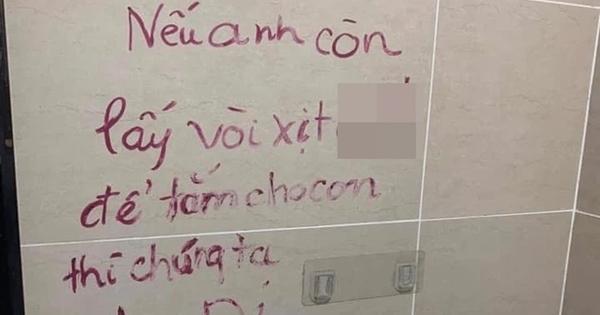 Nếu anh còn
lấy vòi xịt
để tắm cho con
thì chúng ta